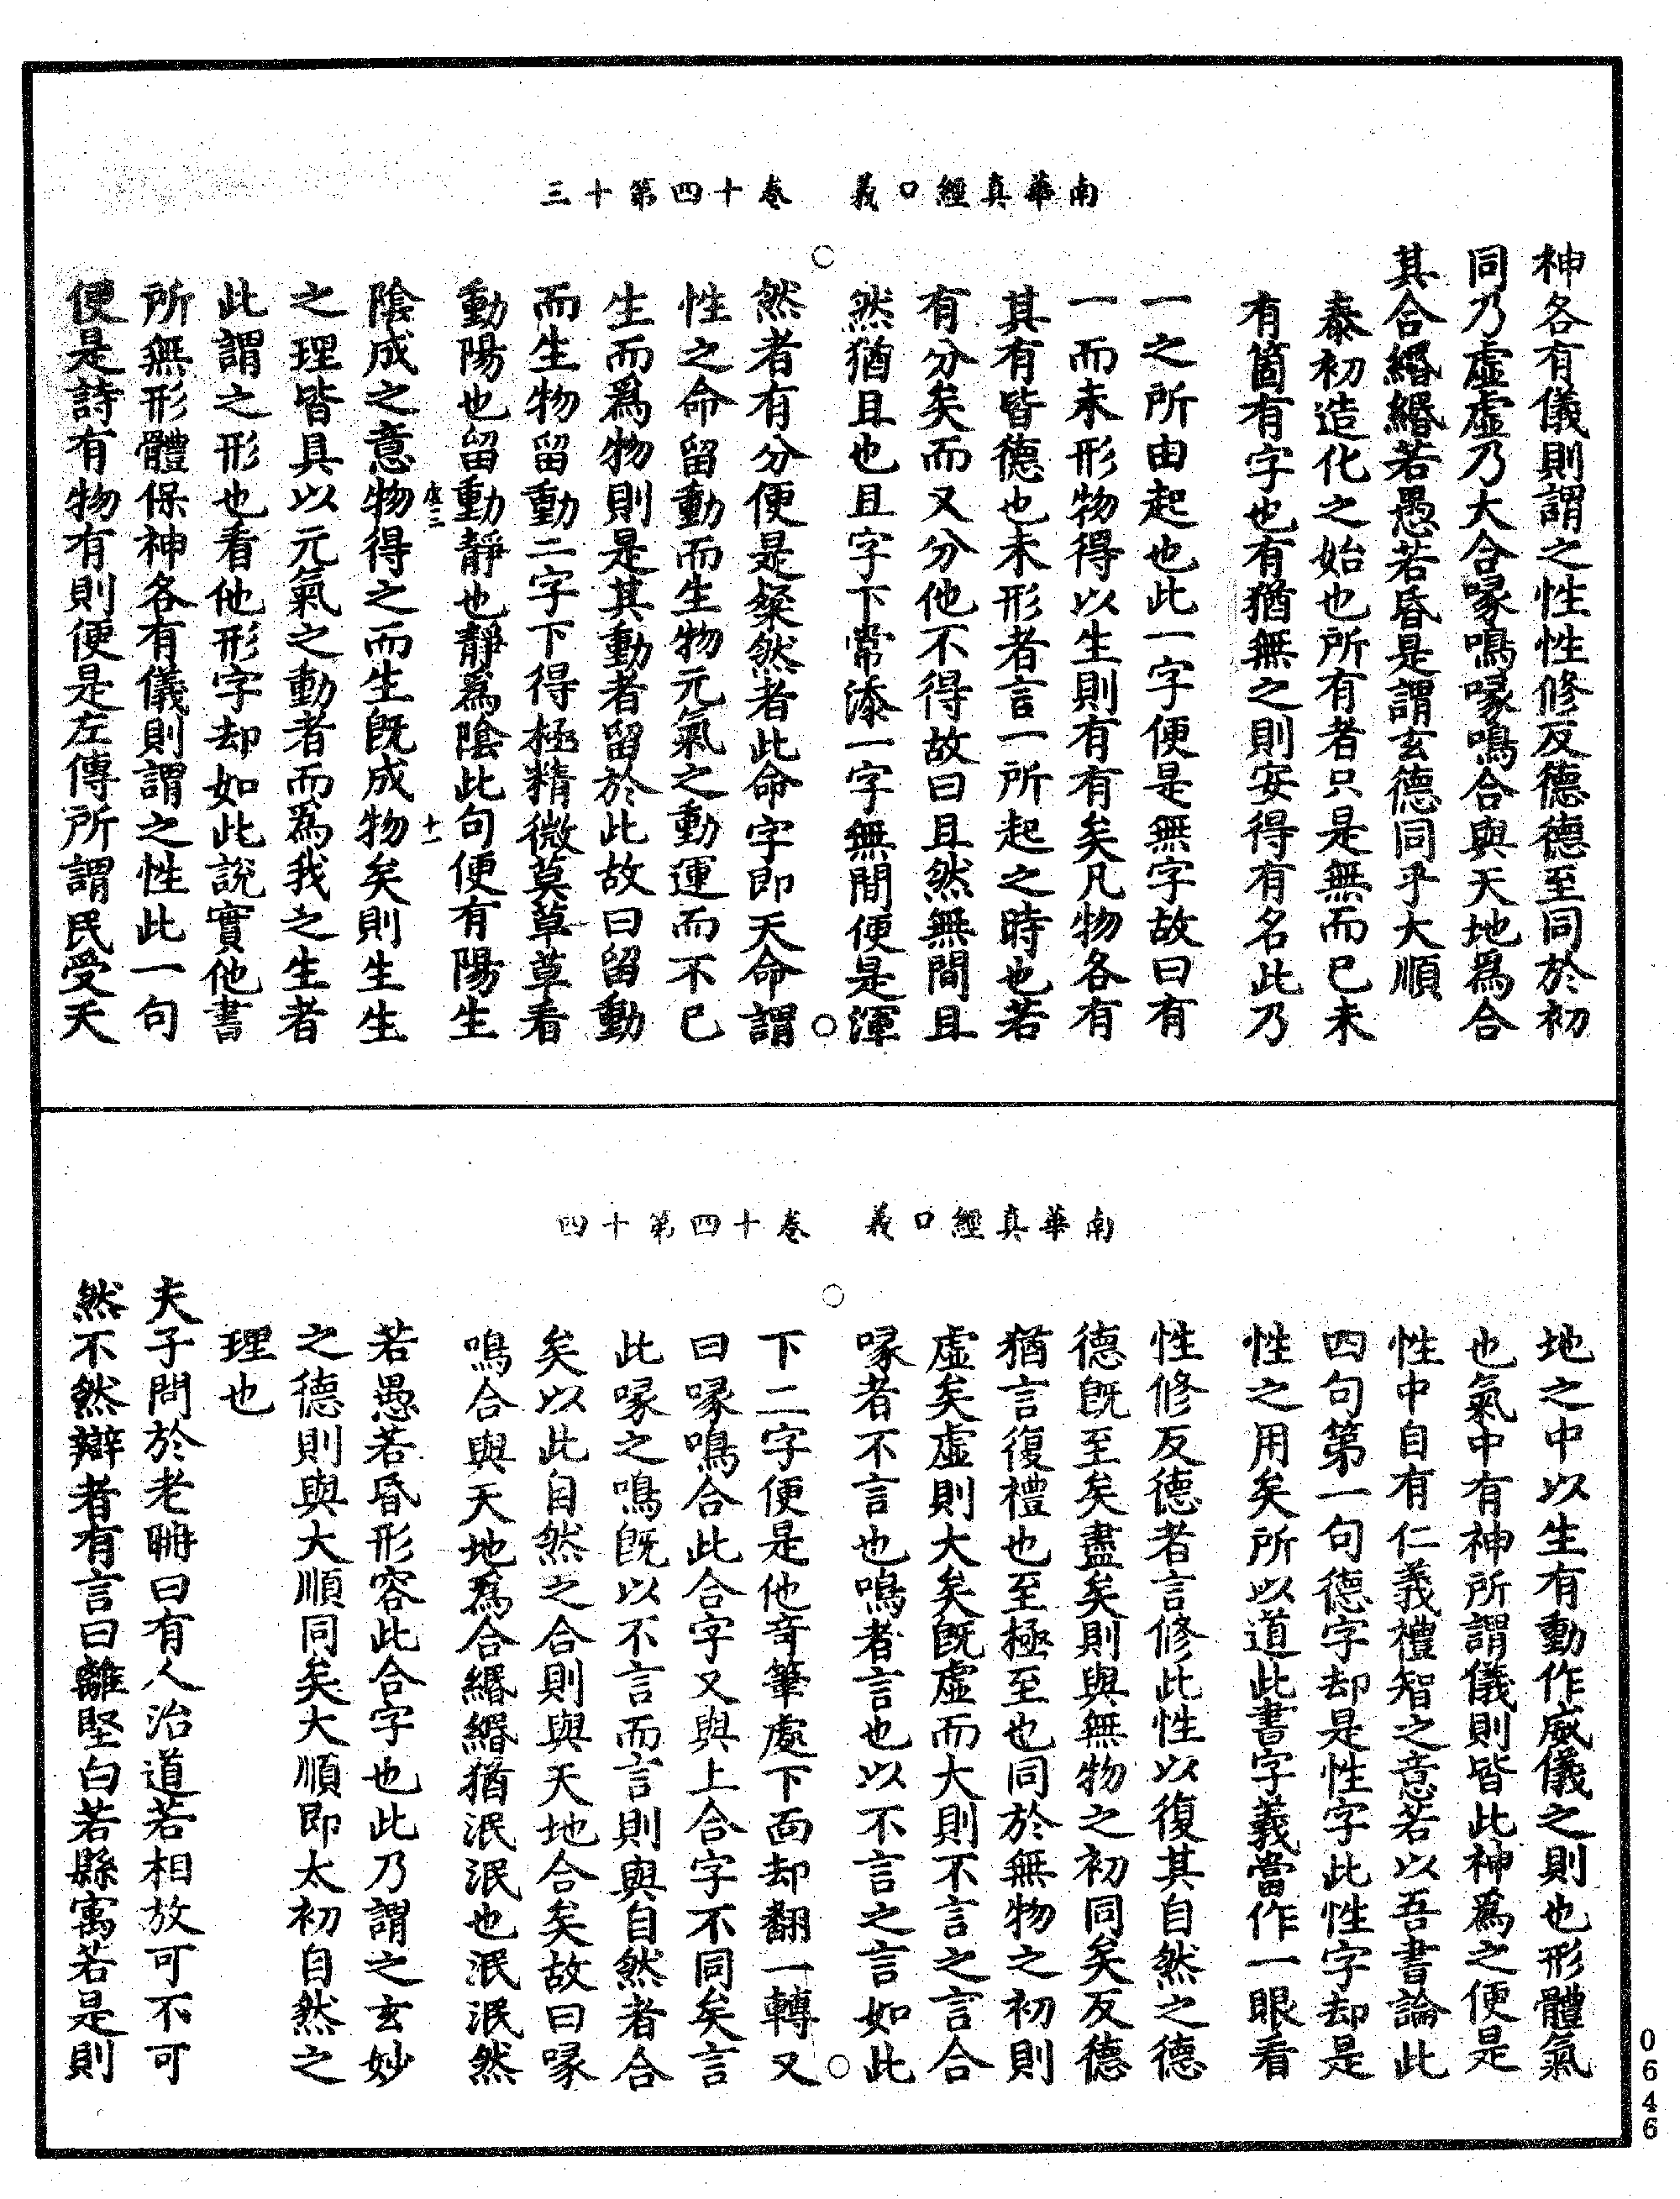 南華真經口義　卷十四第十三
神各有儀則謂之性性修反德德至同於初
同乃虛虛乃大合喙鳴喙鳴合與天地爲合
其合緡緡若愚若昏是謂玄德同乎大順
泰初造化之始也所有者只是無而已未
有箇有字也有猶無之則安得有名此乃
一之所由起也此一字便是無字故曰有
一而未形物得以生則有有矣凡物各有
其有皆德也未形者言一所起之時也若
有分矣而又分他不得故曰且然無間且
然猶且也且字下常添一字無間便是渾
然者有分便是粲然者此命字即天命謂
性之命留動而生物元氣之動運而不已
生而爲物則是其動者留於此故曰留動
而生物留動二字下得極精微莫草草看
動陽也留動靜也靜爲陰此句便有陽生
虛三　十一
陰成之意物得之而生既成物矣則生生
之理皆具以元氣之動者而爲我之生者
此謂之形也看他形字却如此說實他書
所無形體保神各有儀則謂之性此一句
便是詩有物有則便是左傳所謂民受天
南華真經口義　卷十四第十四
地之中以生有動作威儀之則也形體氣
也氣中有神所謂儀則皆此神爲之便是
性中自有仁義禮智之意若以吾書論此
四句第一句德字却是性字此性字却是
性之用矣所以道此書字義當作一眼看
性修反德者言修此性以復其自然之德
德既至矣盡矣則與無物之初同矣反德
猶言復禮也至極至也同於無物之初則
虛矣虛則大矣既虛而大則不言之言合
喙者不言也鳴者言也以不言之言如此
下二字便是他奇筆處下面却翻一轉又
曰喙鳴合此合字又與上合字不同矣言
此喙之鳴既以不言而言則與自然者合
矣以此自然之合則與天地合矣故曰喙
鳴合與天地爲合緡緡猶泯泯也泯泯然
若愚若昏形容此合字也此乃謂之玄妙
之德則與大順同矣大順即太初自然之
理也
夫子問於老聃曰有人治道若相放可不可
然不然辯者有言曰離堅白若縣寓若是則
0646